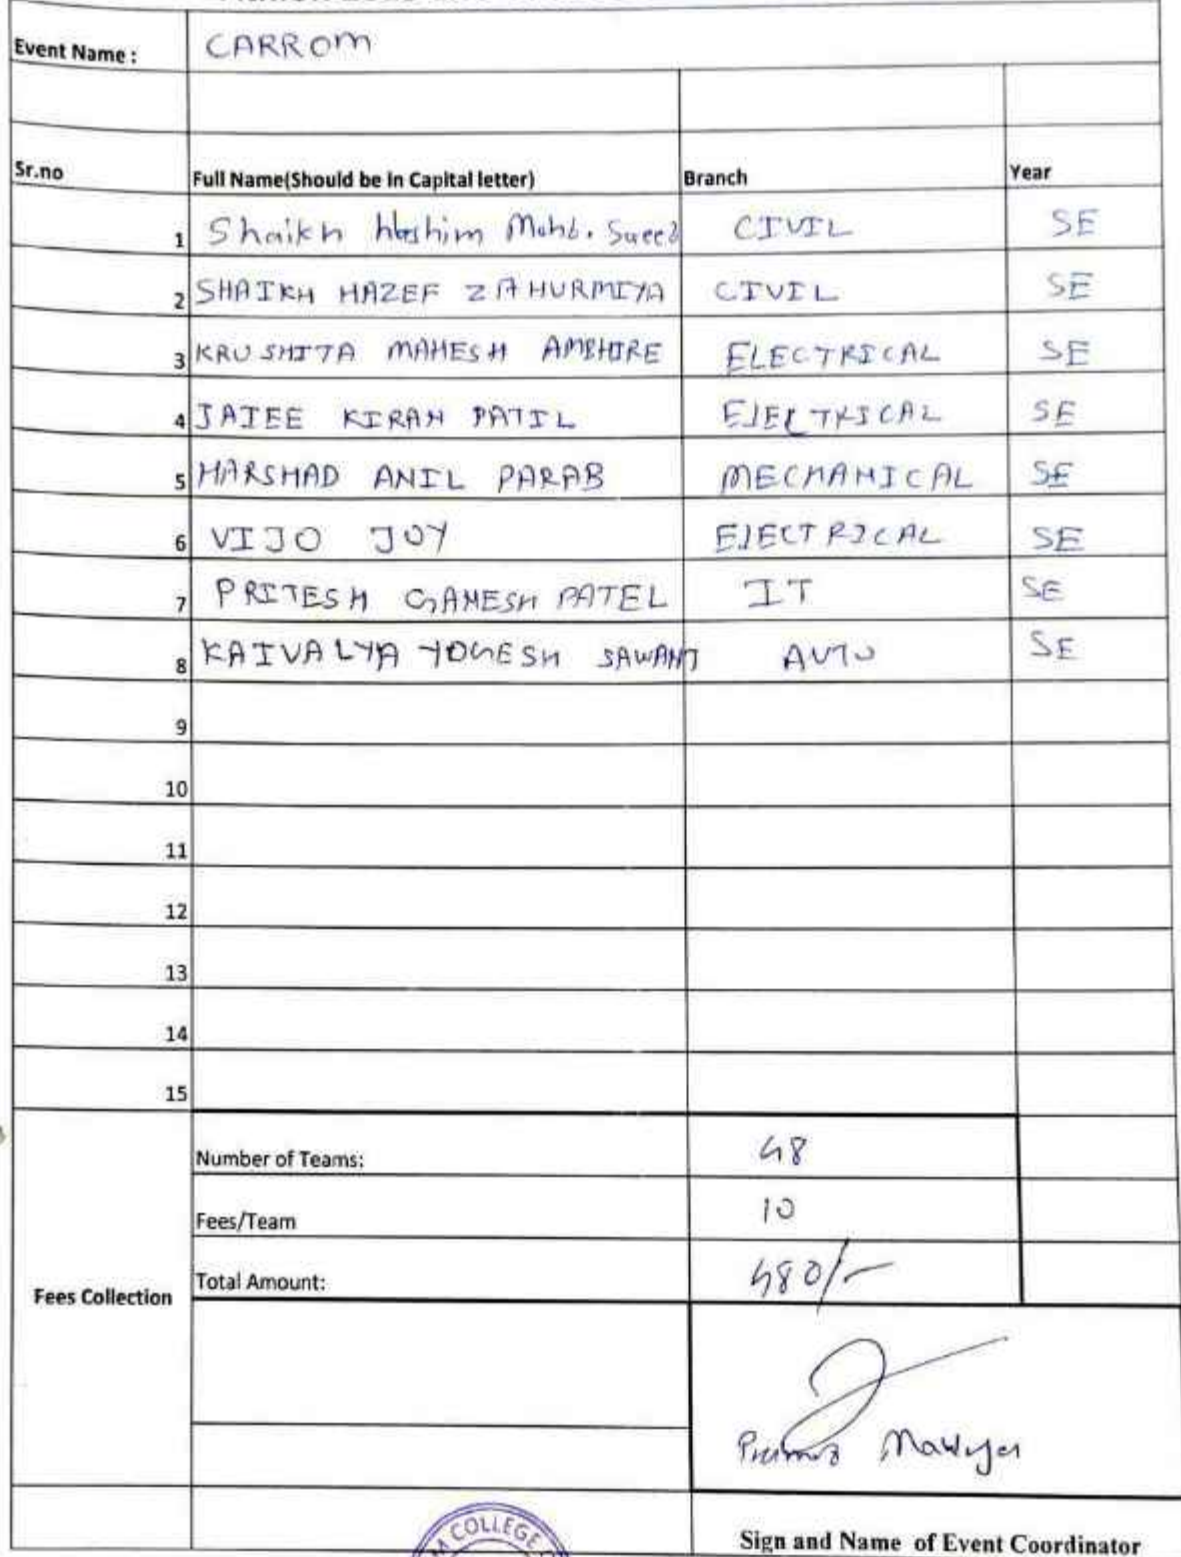 Event Name : CARROM
Sr.no Full Name(Should be in Capital letter) Branch Year
1 Shaikh Hashim Mohd. Saeed CIVIL SE
2 SHAIKH HAZEF ZAHURMIYA CIVIL SE
3 KRUSHITA MAHESH AMBHIRE ELECTRICAL SE
4 JAIEE KIRAN PATIL ELECTRICAL SE
5 HARSHAD ANIL PARAB MECHANICAL SE
6 VIJO JOY ELECTRICAL SE
7 PRITESH GANESH PATEL IT SE
8 KAIVALYA YOGESH SAWANT AUTO SE
9
10
11
12
13
14
15
Number of Teams: 48
Fees/Team 10
Total Amount: 480/-
Fees Collection
Sign and Name of Event Coordinator
COLLEGE